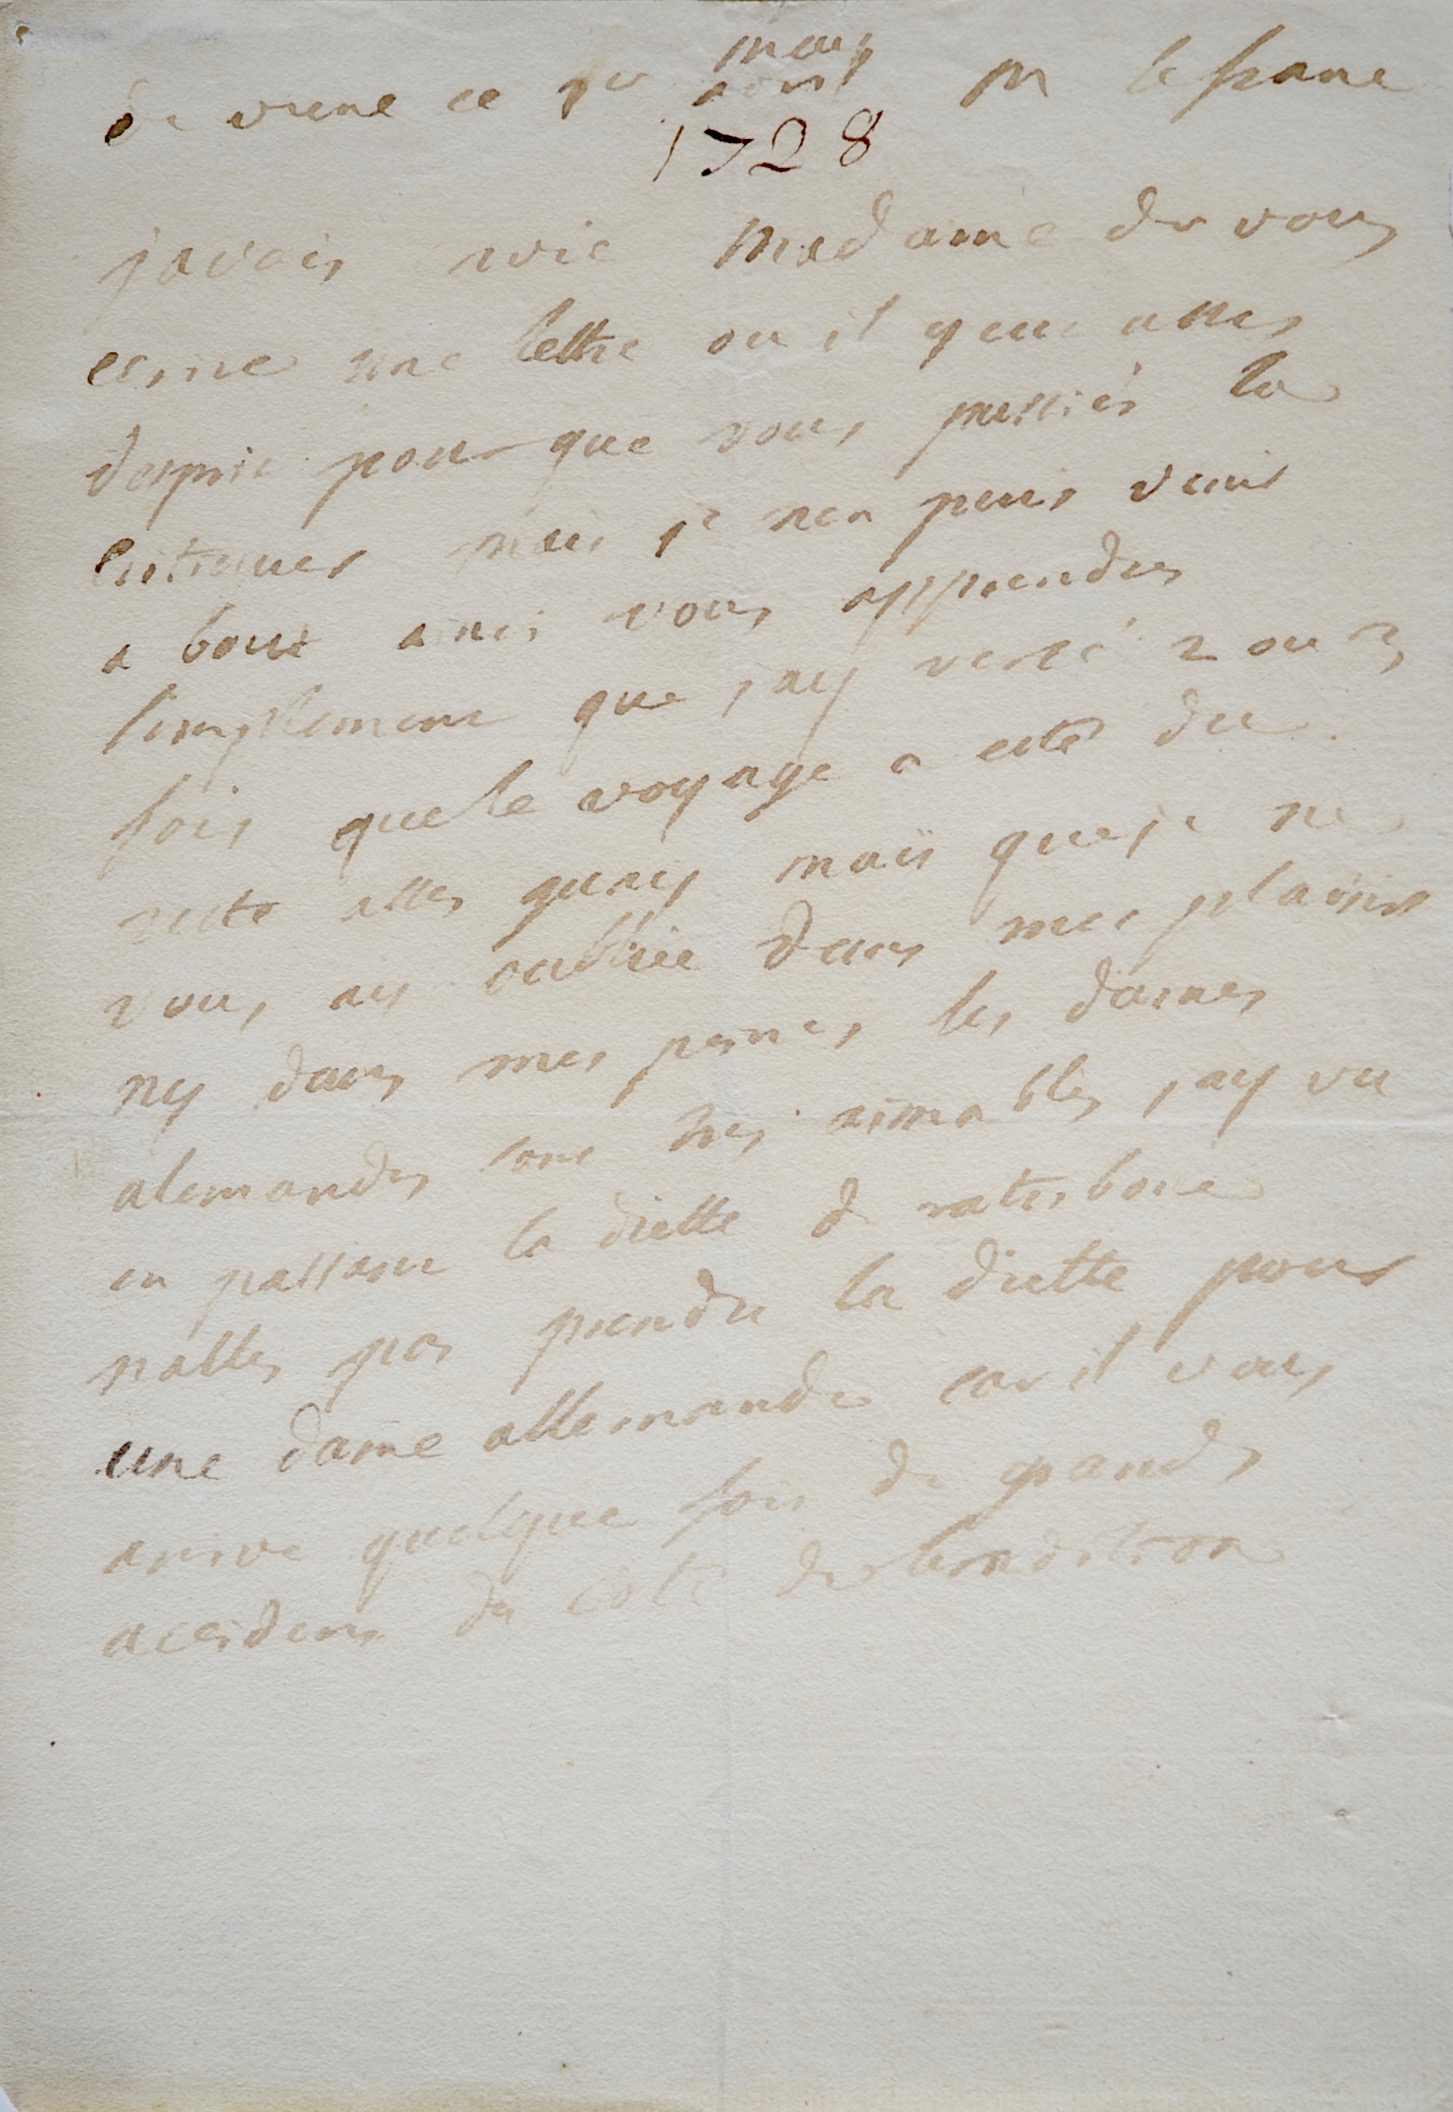 de viene ce 1er may
aoust
1728
javois envie Madame de vous
ecrire une lettre ou il y eut asses
desprit pour que vous pussiés la
critiquer mais je nen puis venir
a bout ainsi vous apprendres
simplement que jay versé 2 ou 3
fois que le voyage a esté du
reste asses guay mais que je ne
vous ay oubliée dans mes plaisirs
ny dans mes peines les dames
alemandes sont tres aimables jay vu
en passant la diette de ratisbone
nalles pas prendre la diette pour
une dame allemande car il vous
arive quelque fois de grands
accidens du coté de lerudition